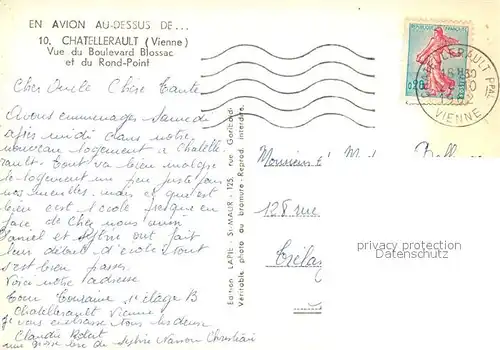 EN AVION AU-DESSUS DE...
10. CHATELLERAULT (Vienne)
Vue du Boulevard Blossac
et du Rond-Point
Cher Oncle Chère Tante
Avons emménagé Samedi
après midi dans notre
nouveau logement à Chatelle-
rault. Tout va bien malgré
le logement un peu juste pour
nos meubles. mais ce que est
bien c'est l'école presque en
face de chez nous aussi
Daniel et Sylvie ont fait
leur début d'école tout
s'est bien passé.
Voici notre adresse
Tour Touraine étage 13
Chatellerault Vienne
Je vous embrasse tous les deux
Claudie Robert
une grosse bise de Sylvie Christian
Edition LAPIE - St-MAUR - 125, rue Garibaldi
Véritable photo au bromure - Reprod. interdite.
0,20
CHATELLERAULT PPAL
VIENNE
Monsieur et
128 rue
privacy protection
VARIABLES